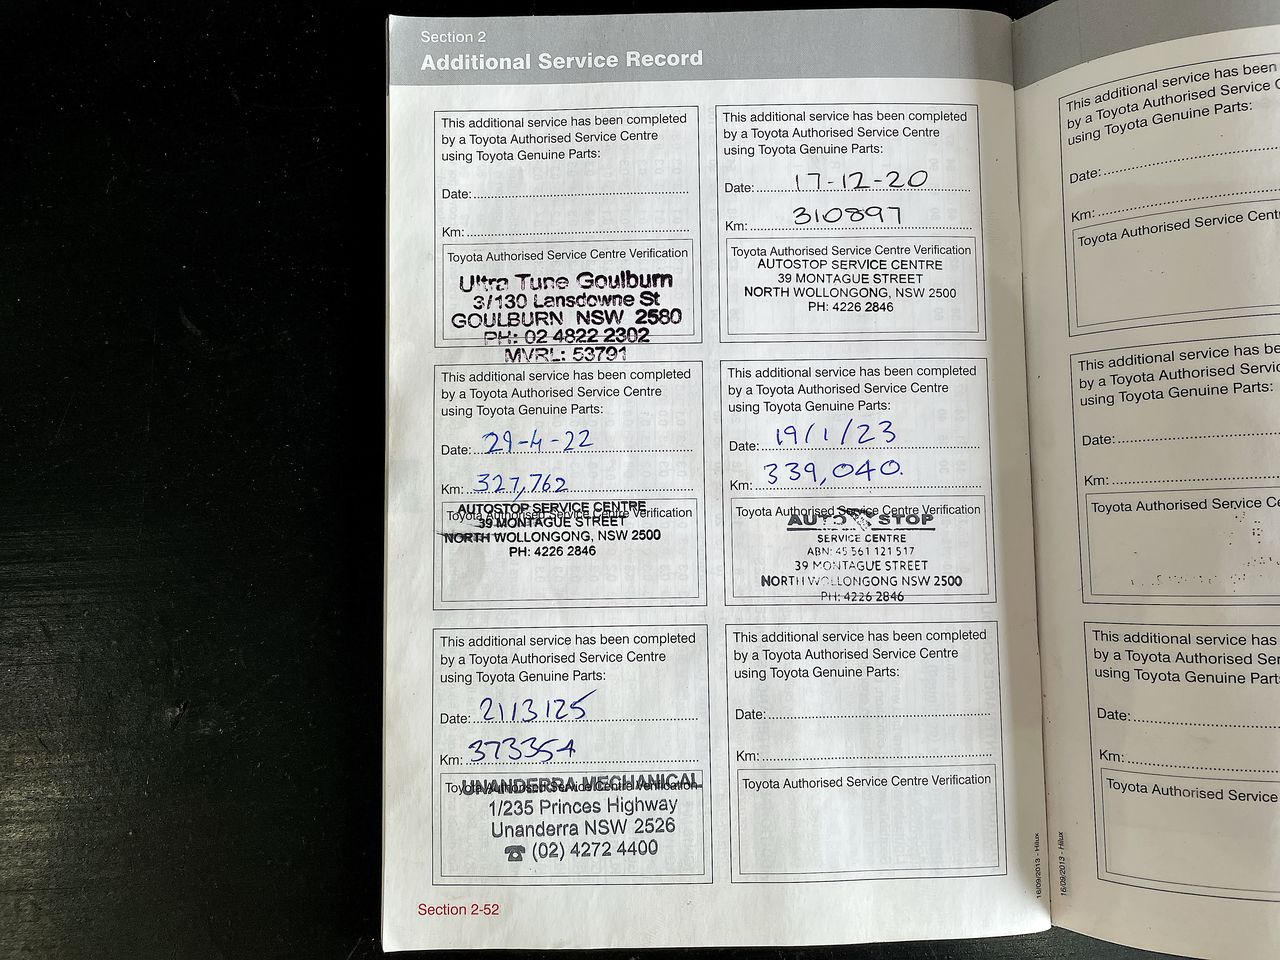 Section 2
Additional Service Record
This additional service has been completed
by a Toyota Authorised Service Centre
using Toyota Genuine Parts:
Date:
Km:
Toyota Authorised Service Centre Verification
Ultra Tune Goulburn
3/130 Lansdowne St
GOULBURN NSW 2580
PH: 02 4822 2302
MVRL: 53791
This additional service has been completed
by a Toyota Authorised Service Centre
using Toyota Genuine Parts:
Date: 17-12-20
Km: 310897
Toyota Authorised Service Centre Verification
AUTOSTOP SERVICE CENTRE
39 MONTAGUE STREET
NORTH WOLLONGONG, NSW 2500
PH: 4226 2846
This additional service has been completed
by a Toyota Authorised Service Centre
using Toyota Genuine Parts:
Date: 29-4-22
Km: 327,762
Toyota Authorised Service Centre Verification
AUTOSTOP SERVICE CENTRE
39 MONTAGUE STREET
NORTH WOLLONGONG, NSW 2500
PH: 4226 2846
This additional service has been completed
by a Toyota Authorised Service Centre
using Toyota Genuine Parts:
Date: 19/1/23
Km: 339,040.
Toyota Authorised Service Centre Verification
AUTO STOP
SERVICE CENTRE
ABN: 45 561 121 517
39 MONTAGUE STREET
NORTH WOLLONGONG NSW 2500
PH: 4226 2846
This additional service has been completed
by a Toyota Authorised Service Centre
using Toyota Genuine Parts:
Date: 21/3/25
Km: 373354
Toyota Authorised Service Centre Verification
UNANDERRA MECHANICAL
1/235 Princes Highway
Unanderra NSW 2526
☎ (02) 4272 4400
This additional service has been completed
by a Toyota Authorised Service Centre
using Toyota Genuine Parts:
Date:
Km:
Toyota Authorised Service Centre Verification
Section 2-52
16/09/2013 - Hilux
16/09/2013 - Hilux
This additional service has been
by a Toyota Authorised Service
using Toyota Genuine Parts:
Date:
Km:
Toyota Authorised Service
This additional service has
by a Toyota Authorised
using Toyota Genuine Parts:
Date:
Km:
Toyota Authorised Service
This additional service has
by a Toyota Authorised
using Toyota Genuine
Date:
Km:
Toyota Authorised Service